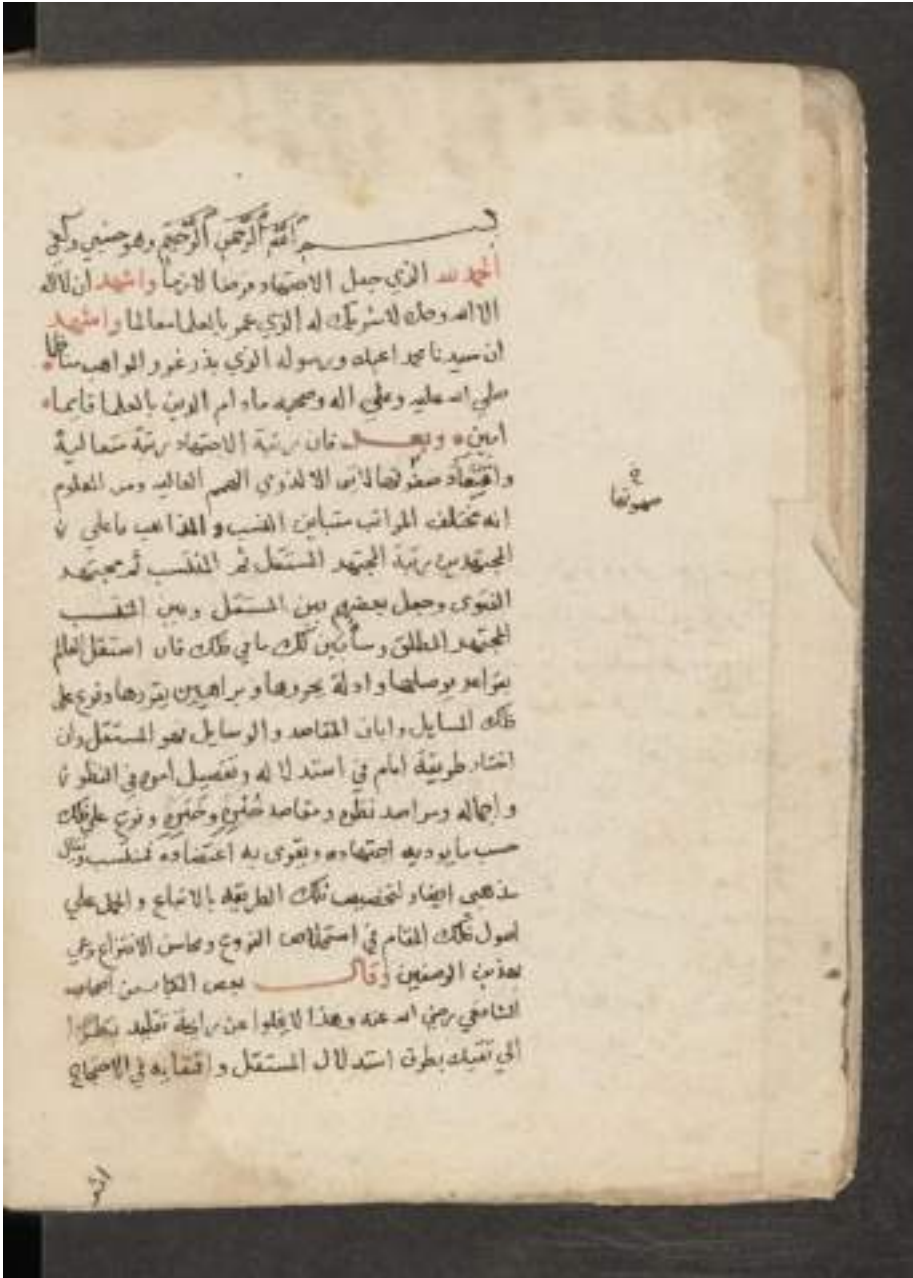 بسم الله الرحمن الرحيم وهو حسبي وكفى
الحمد لله الذي جعل الاجتهاد فرضا لازما واشهد ان لا اله
الا الله وحده لا شريك له الذي عمر بالعلما معالما واشهد
ان سيدنا محمدا عبده ورسوله الذي بذر غرر المواهب
صلى الله عليه وعلى اله وصحبه مادام الدين بالعلما قايما
امين وبعد فان رتبة الاجتهاد رتبة متعالية
صهوتها لذوي الهمم العاليه ومن المعلوم
انه مختلف المراتب متباين النسب والمذاهب فاعلى
المجتهدين رتبة المجتهد المستقل ثم المنتسب ثم مجتهد
الفتوى وجعل بعضهم بين المستقل وبين المنتسب
المجتهد المطلق وسأبين لك ما في ذلك فان استقل العالم
بقواعد يوصلها وادلة يحررها وبراهين يقررها وفرع على
ذلك المسايل وابان المقاصد والوسايل فهو المستقل وان
اختار طريقة امام في استدلاله وتفصيل اموره في النظر
واجماله ومراصد نظره ومقاصد وفرع على ذلك
حسب ما يوديه اجتهاده ويقوى به اعتضاده فمنتسب ويقال
مذهبي ايضا لتخصيصه تلك الطريقه بالاتباع والعمل على
اصول ذلك المقام في استخلاص الفروع ومحاسن الاقتراع وعي
بهذين الوصفين وقال بعض الكبار من اصحاب
الشافعي رضي الله عنه وهذا لا يخلوا عن رايحة تقليد نظرا
الى تقيده بطرق استدلال المستقل واقتفايه في الاحتجاج
صهوتها